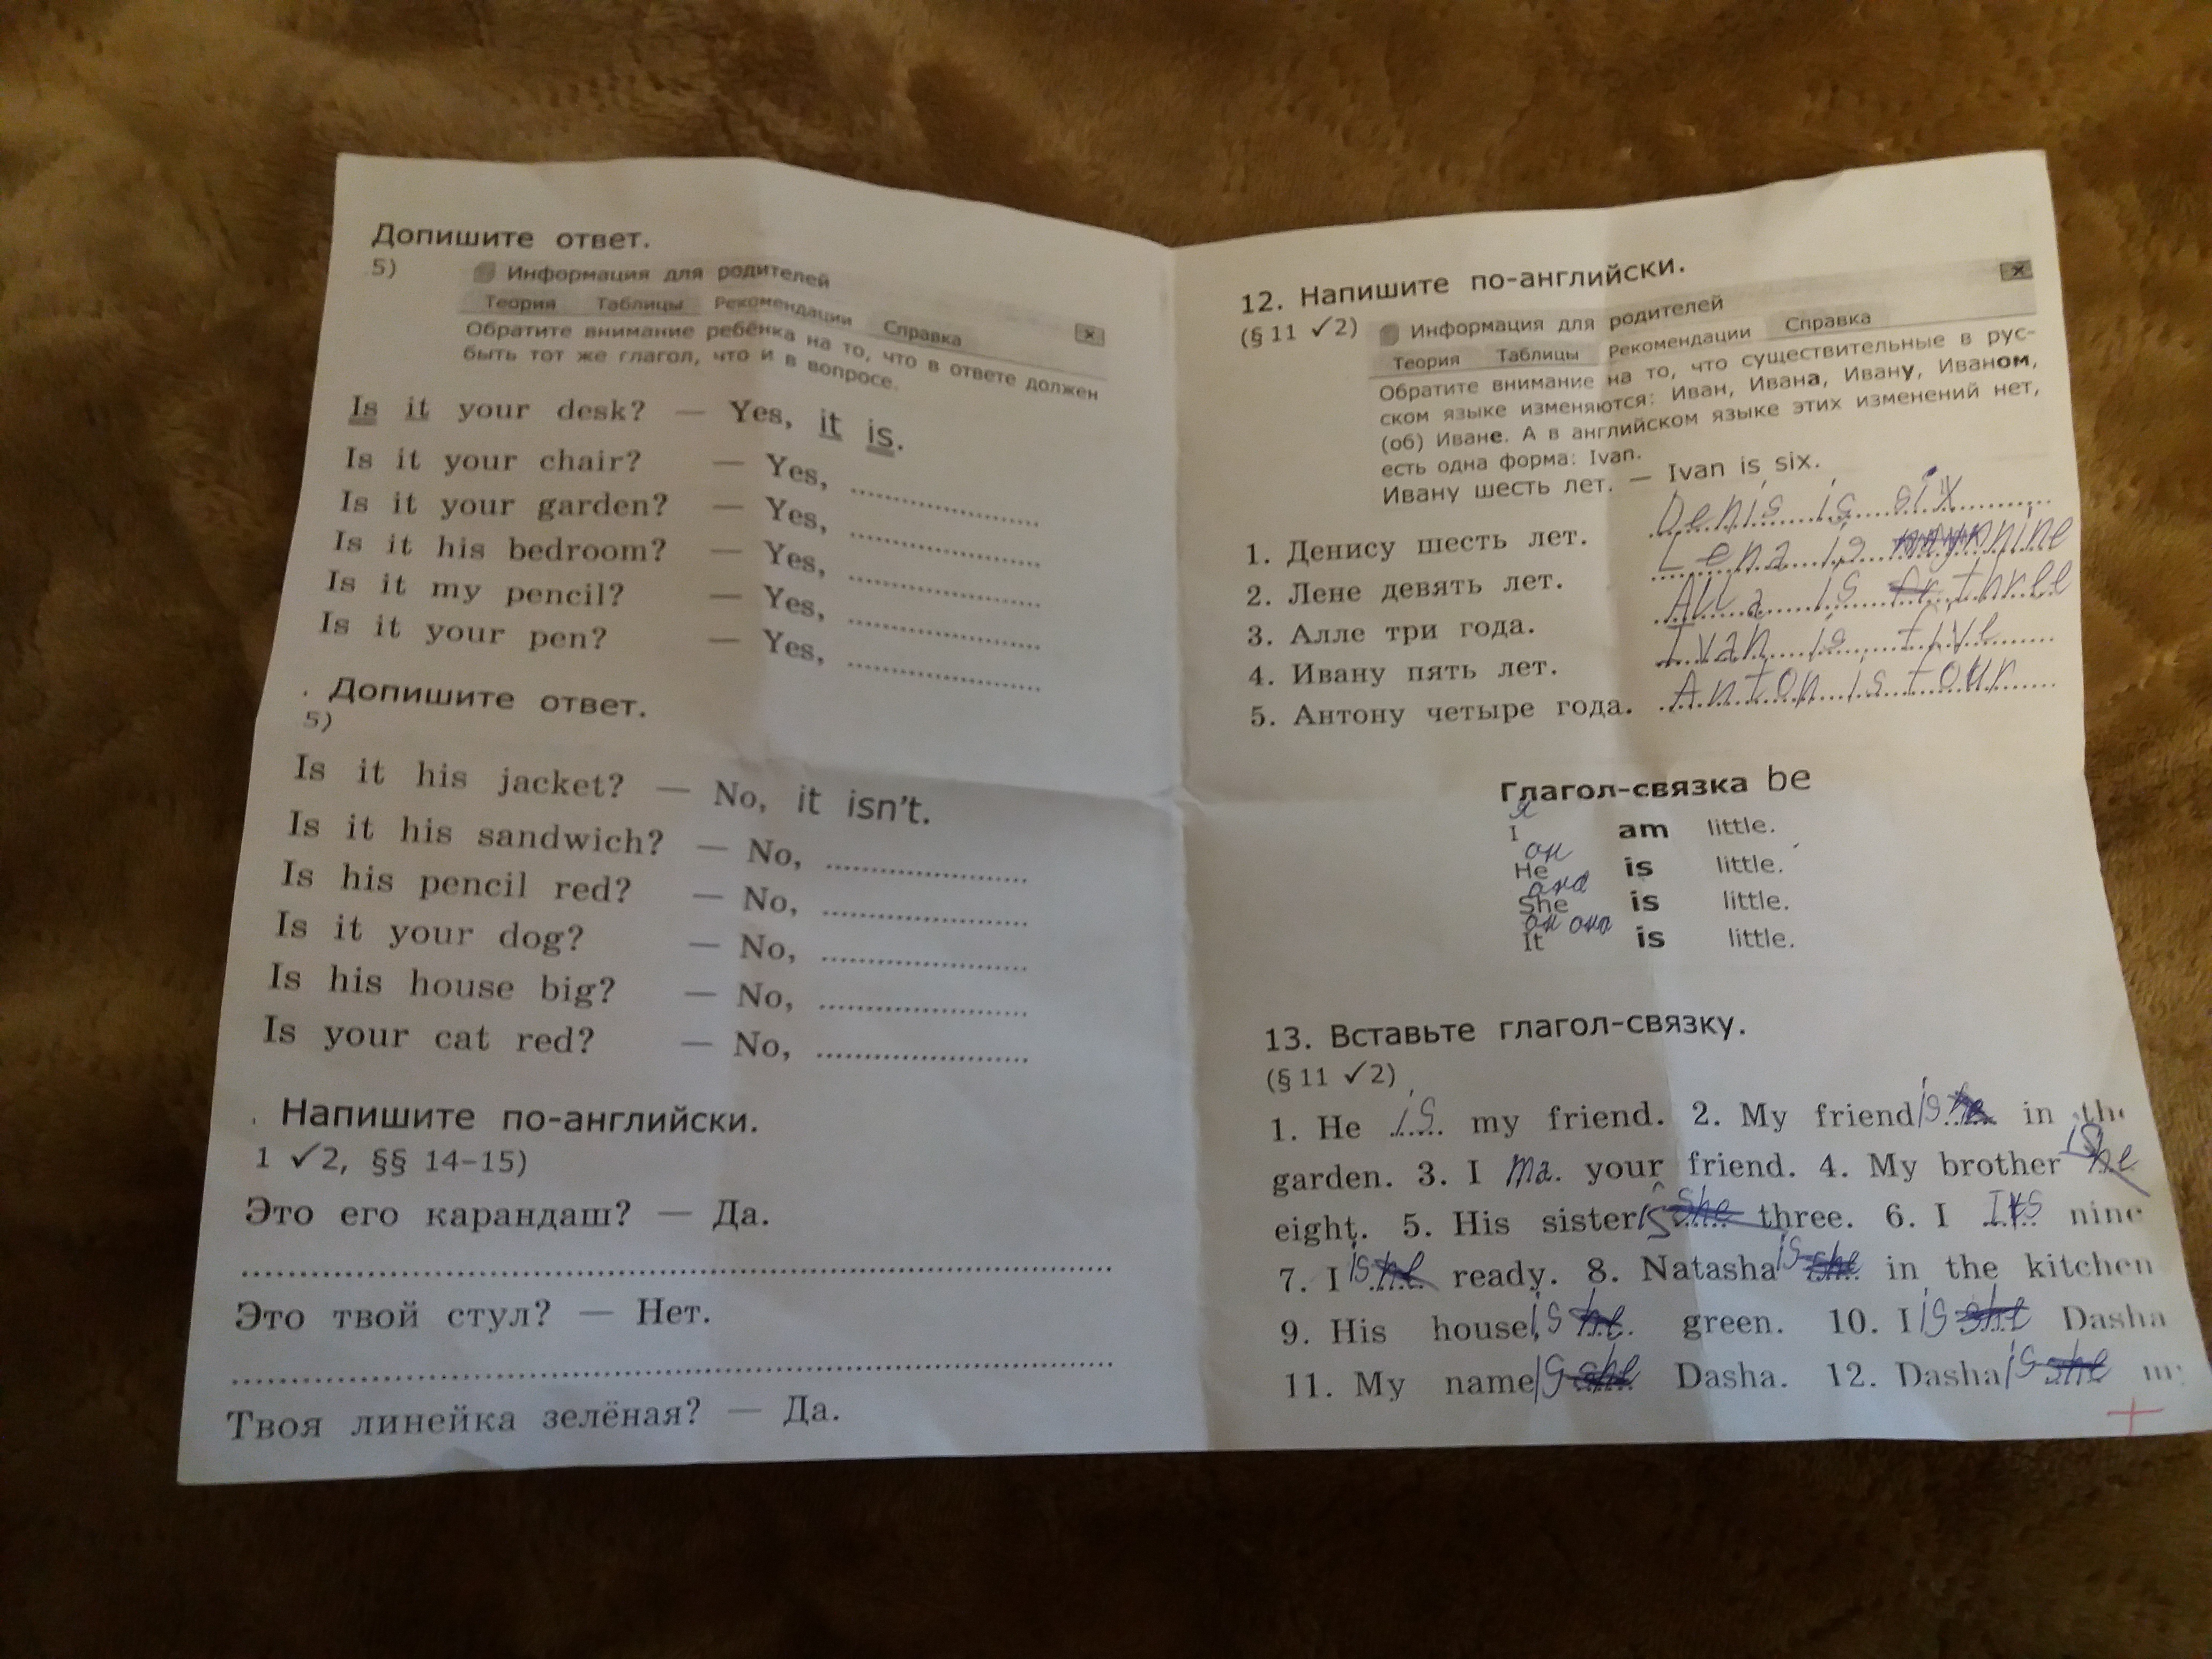 Допишите ответ.
5)
Информация для родителей
Теория Таблицы Рекомендации Справка
Обратите внимание ребёнка на то, что в ответе должен
быть тот же глагол, что и в вопросе.
Is it your desk? — Yes, it is.
Is it your chair? — Yes,
Is it your garden? — Yes,
Is it his bedroom? — Yes,
Is it my pencil? — Yes,
Is it your pen? — Yes,
. Допишите ответ.
5)
Is it his jacket? — No, it isn't.
Is it his sandwich? — No,
Is his pencil red? — No,
Is it your dog? — No,
Is his house big? — No,
Is your cat red? — No,
. Напишите по-английски.
1 ✓2, §§ 14–15)
Это его карандаш? — Да.
Это твой стул? — Нет.
Твоя линейка зелёная? — Да.
12. Напишите по-английски.
(§ 11 ✓2)
Информация для родителей
Теория Таблицы Рекомендации Справка
Обратите внимание на то, что существительные в рус-
ском языке изменяются: Иван, Ивана, Ивану, Иваном,
(об) Иване. А в английском языке этих изменений нет,
есть одна форма: Ivan.
Ивану шесть лет. — Ivan is six.
1. Денису шесть лет. Denis is six
2. Лене девять лет. Lena is nine
3. Алле три года. Alla is three
4. Ивану пять лет. Ivan is five
5. Антону четыре года. Anton is four
Глагол-связка be
я
I am little.
он
He is little.
она
She is little.
он оно
It is little.
13. Вставьте глагол-связку.
(§ 11 ✓2)
1. He is my friend. 2. My friend is he in the
garden. 3. I ma. your friend. 4. My brother is he
eight. 5. His sister is she three. 6. I nine
7. I is he ready. 8. Natasha is she in the kitchen
9. His house is he green. 10. I is she Dasha
11. My name is she Dasha. 12. Dasha is she my